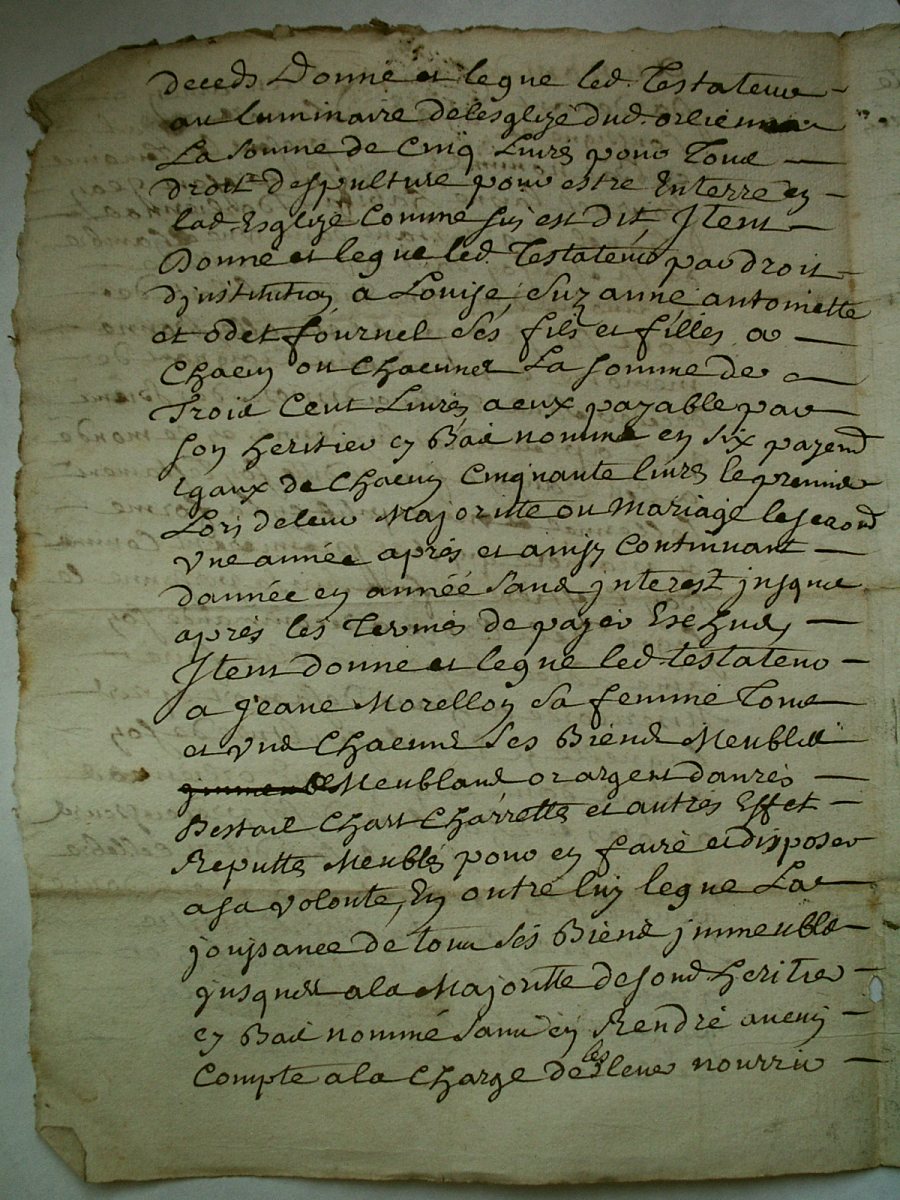 deceds Donne et legue led. Testateur
au luminaire de lesglize dud. orlienna
La somme de Cinq Livres pour Tous
droits despulture pour estre Enterré en
lad. Esglize Comme sus est dit, Item
Donne et legue led. Testateur par droit
dinstitution a Louise, Suzanne antoinette
et odet fournel ses fils et filles a
Chacun ou Chacune La somme de
Trois Cent Livres a eux payable par
son heritier cy Bas nommé en six payend
Egaux de Chacun Cinquante livres le premier
Lors de leur Majoritte ou Mariage le second
Une année aprés et ainsy Continuant
dannée en année sans interest jusques
aprés les Termes de payer Eschus,
Item donne et legue led. testateur
a Jeane Morellon sa femme Tous
et Uns Chacuns ses Biens Meubles
Meublans or argent danrés
Bestail Chart Charrette et autres Effet
Reputtés Meublés pour en faire et disposer
a sa volonté, En outre luy legue La
jouissance de tous ses Biens jmmeubles
jusques a la Majoritte de sond heritier
cy Bas nommé sans en Rendre aucun
Compte a la Charge de les leur nourrir